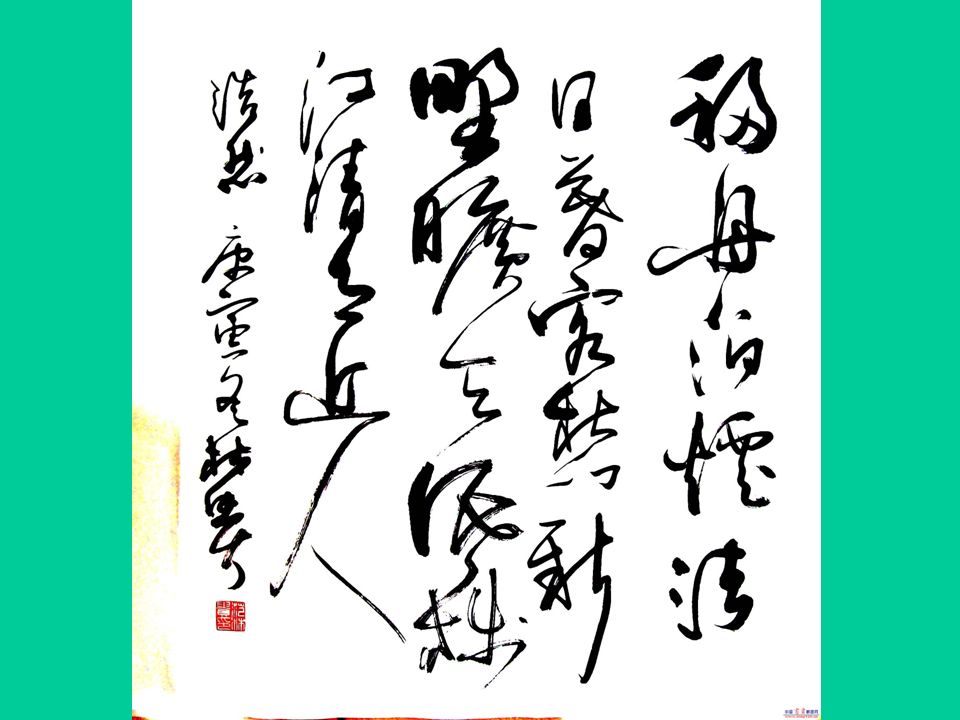 移舟泊煙渚
日暮客愁新
野曠天低樹
江清月近人
浩然 庚寅冬